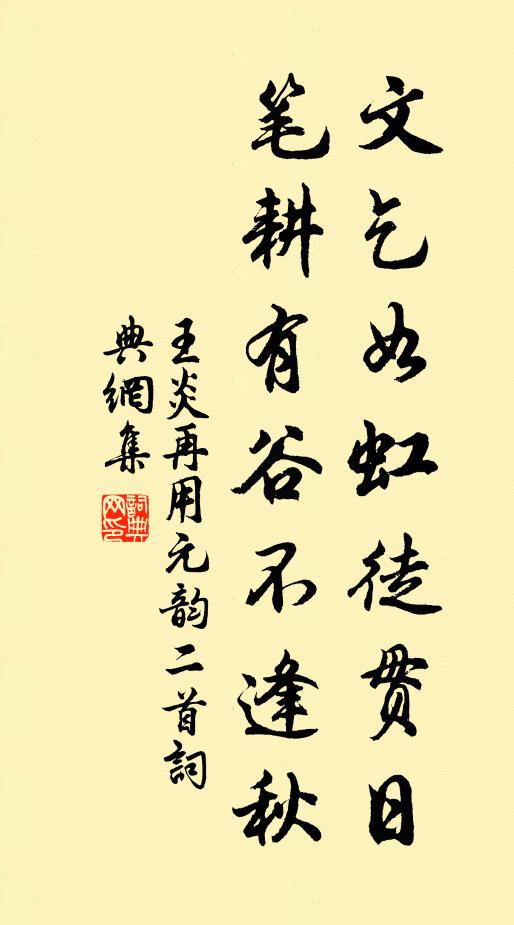 文气如虹徒贯日
笔耕有谷不逢秋
王炎再用元韵二首詞
典網集
詞典网印